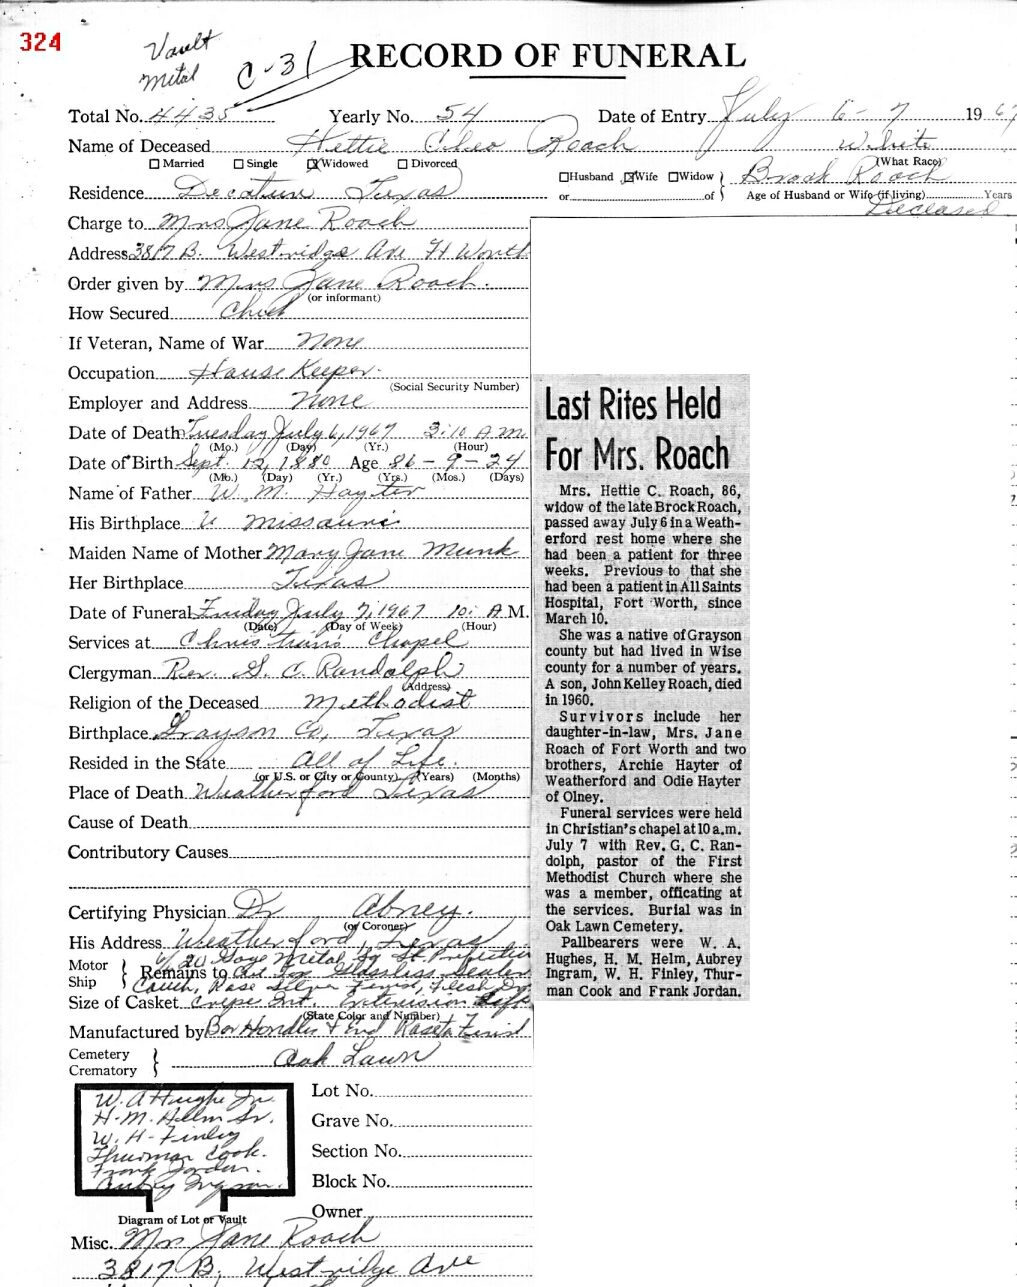 324
Vault
Metal
C-31
RECORD OF FUNERAL
Total No. 4435 Yearly No. 54 Date of Entry July 6-7 1967
Name of Deceased Hettie Cleo Roach White
(What Race)
Married Single Widowed Divorced
Husband Wife Widow Brock Roach
Residence Decatur Texas
or of Age of Husband or Wife (if living) Years
Deceased
Charge to Mrs Jane Roach
Address 3817 B. Westridge Ave Ft Worth
Order given by Mrs Jane Roach.
(or informant)
How Secured
If Veteran, Name of War None
Occupation House Keeper.
(Social Security Number)
Employer and Address None
Date of Death Tuesday July 6, 1967 3:10 A.M.
(Mo.) (Day) (Yr.) (Hour)
Date of Birth Sept. 12, 1880 Age 86-9-24
(Mo.) (Day) (Yr.) (Yrs.) (Mos.) (Days)
Name of Father W. M. Hayter
His Birthplace Missouri
Maiden Name of Mother Mary Jane Munk
Her Birthplace Texas
Date of Funeral Friday July 7, 1967 10: A.M.
(Date) (Day of Week) (Hour)
Services at Christian's Chapel
Clergyman Rev. G. C. Randolph
(Address)
Religion of the Deceased Methodist
Birthplace Grayson Co, Texas
Resided in the State All of Life.
(or U.S. or City or County) (Years) (Months)
Place of Death Weatherford Texas
Cause of Death
Contributory Causes
Certifying Physician Dr Abney.
(or Coroner)
His Address Weatherford, Texas
20 Gage Metal Sq
Motor
Ship
Remains to Glassless Sealer
Couch, Rose Silver Finish, Flesh
Size of Casket Crepe Int. Extension
(State Color and Number)
Manufactured by Bar Handles + End
Cemetery
Crematory
Oak Lawn
W. A Hughe Jr.
H-M. Helm Sr.
W. H-Finley
Thurman Cook.
Frank Jordon.
Aubry Ingram.
Diagram of Lot or Vault
Lot No.
Grave No.
Section No.
Block No.
Owner
Misc. Mrs Jane Roach
3817 B. Westridge Ave
Last Rites Held
For Mrs. Roach
Mrs. Hettie C. Roach, 86,
widow of the late Brock Roach,
passed away July 6 in a Weath-
erford rest home where she
had been a patient for three
weeks. Previous to that she
had been a patient in All Saints
Hospital, Fort Worth, since
March 10.
She was a native of Grayson
county but had lived in Wise
county for a number of years.
A son, John Kelley Roach, died
in 1960.
Survivors include her
daughter-in-law, Mrs. Jane
Roach of Fort Worth and two
brothers, Archie Hayter of
Weatherford and Odie Hayter
of Olney.
Funeral services were held
in Christian's chapel at 10 a.m.
July 7 with Rev. G. C. Ran-
dolph, pastor of the First
Methodist Church where she
was a member, officating at
the services. Burial was in
Oak Lawn Cemetery.
Pallbearers were W. A.
Hughes, H. M. Helm, Aubrey
Ingram, W. H. Finley, Thur-
man Cook and Frank Jordan.